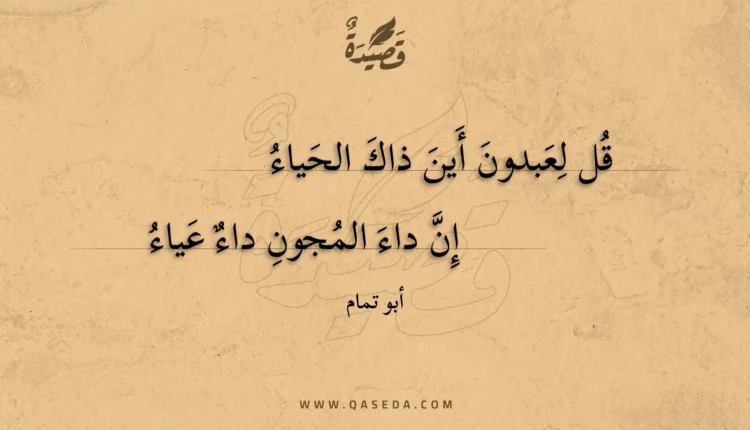 قَصِيْدَةٌ
قُل لِعَبدونَ أَينَ ذاكَ الحَياءُ
إِنَّ داءَ المُجونِ داءٌ عَياءُ
أبو تمام
WWW.QASEDA.COM